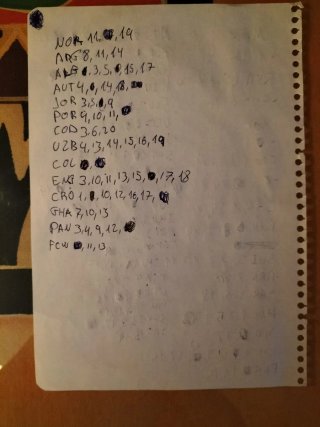 NOR 11, 19
ARG 8, 11, 14
ALG 3, 5, 15, 17
AUT 4, 14, 18,
JOR 3, 5, 9
POR 9, 10, 11,
COD 3, 6, 20
UZB 4, 13, 14, 15, 16, 19
COL
ENG 3, 10, 11, 13, 15, 17, 18
CRO 1, 10, 12, 16, 17,
GHA 7, 10, 13
PAN 3, 4, 9, 12,
FCW , 11, 13